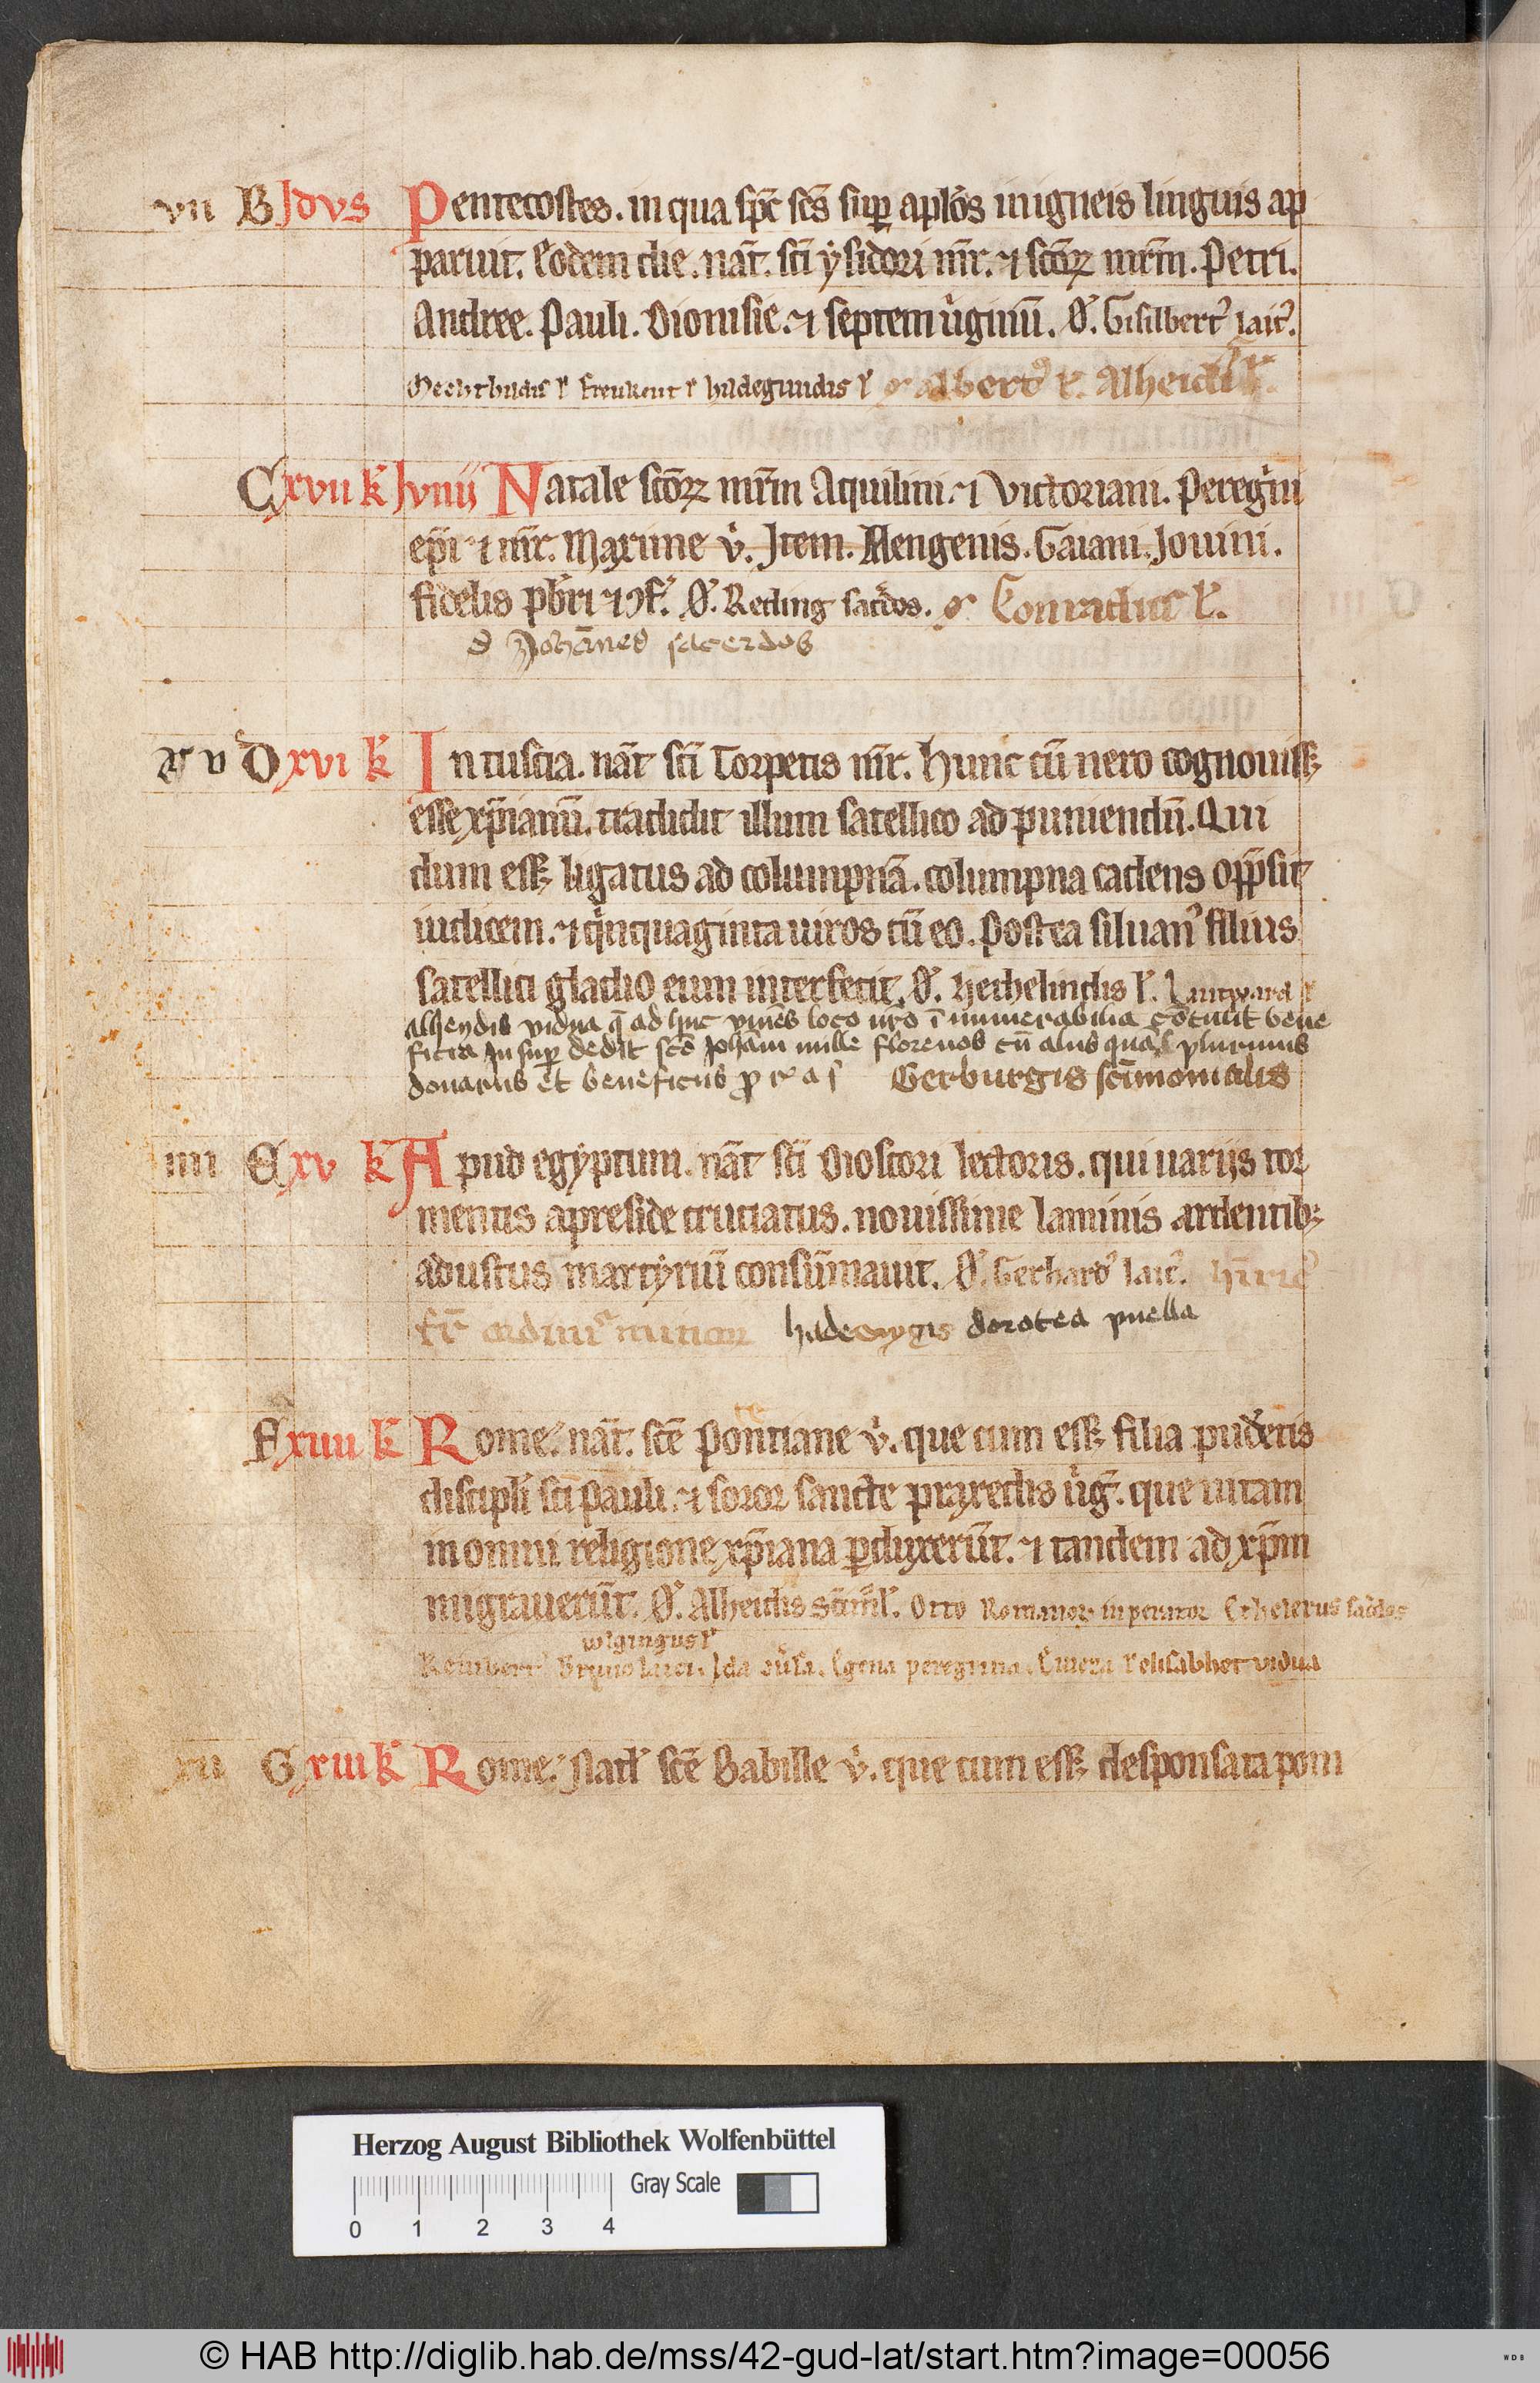 vii B Jdvs Pentecostes. in qua sp̄c sc̄s sup aplōs inigneis linguis ap
paruit. Eodem die. nāt. sc̄i ysidori m̄r. ⁊ sc̄oꝝ mr̄m. Petri.
Andree. Pauli. Dionisie. ⁊ septem ỽginū. Ꝋ. Gisilbertꝰ laicꝰ.
hildegundis albertꝰ Alheidis
C xvii k̄ Jvnii Natale sc̄oꝝ mr̄m Aquilini. ⁊ Victoriani. Peregͥni
ep̄i ⁊ m̄r. Maxime v̓. Jtem. Aengenis. Gaiani. Jouini.
fidelis pb̄ri ⁊ ꝯf. Ꝋ. Reding sac̓dos. Conradus
Johānes sacerdos
v D xvi k̄ In tuscia. nāt sc̄i Torpetis m̄r. Hunc cū nero cognouissꝫ
esse xp̄ianū. tradidit illum satellico ad puniendū. Qui
dum essꝫ ligatus ad columpnā. columpna cadens opp̄sit
iudicem. ⁊ qͥnquaginta uiros cū eo. Postea siluanꝰ filius
satellici gladio eum interfecit. Ꝋ. Hethelindis Lutward
alheydis vidua q̄ ad huc viuēs loco nr̄o īnumerabilia cōtulit bene
ficia Jnsuꝑ dedit scō Johāni mille florenos cū aliis quāplurimis
donariis et beneficiis ꝓ Gerburgis scīmonialis
iiii E xv k̄ Apud egyptum. nāt sc̄i Dioscori lectoris. qui uarijs tor
mentis apreside cruciatus. nouissime laminis ardentibꝫ
adustus martyriū consūmauit. Ꝋ. Gerhardꝰ laicꝰ. hīricꝰ
fr̄ ordinis minor hadewygis dorotea puella
F xiiii k̄ Rome. nāt. sc̄e Pontiane v̓. que cum essꝫ filia pudētis
discipli sc̄i Pauli. ⁊ soror sancte praxedis ỽg̅. que uitam
in omni religione xp̄iana ꝑduxerūt. ⁊ tandem ad xp̄m
migrauerūt. Ꝋ. Alheidis Otto Romanoꝝ inperator Ethelerus sac̓dos
wlgingus
Reinbertꝰ Bruno laici. Jda Egena peregrina. elisabhet vidua
xii G xiii k̄ Rome. Natl̄ sc̄e Babille v̓. que cum essꝫ desponsata pom
Herzog August Bibliothek Wolfenbüttel
Gray Scale
0 1 2 3 4
© HAB http://diglib.hab.de/mss/42-gud-lat/start.htm?image=00056
WDB